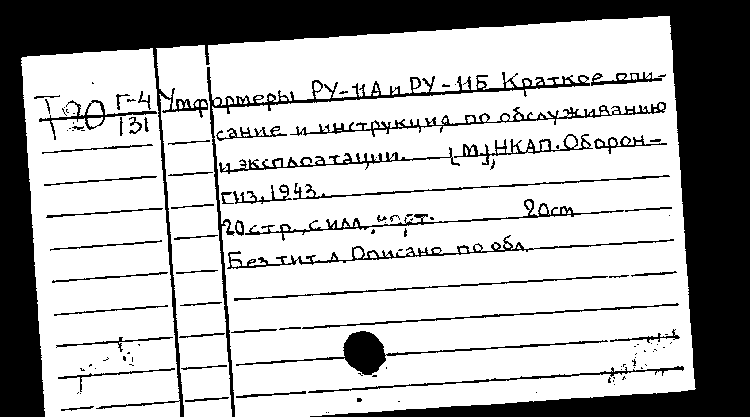 Т20 Г-4/131 Умформеры РУ-11А и РУ-11Б Краткое опи-
сание и инструкция по обслуживанию
и эксплоатации. [М], НКАП. Оборон-
гиз, 1943.
20 стр., с илл. 20см
Без тит. л. Описано по обл.